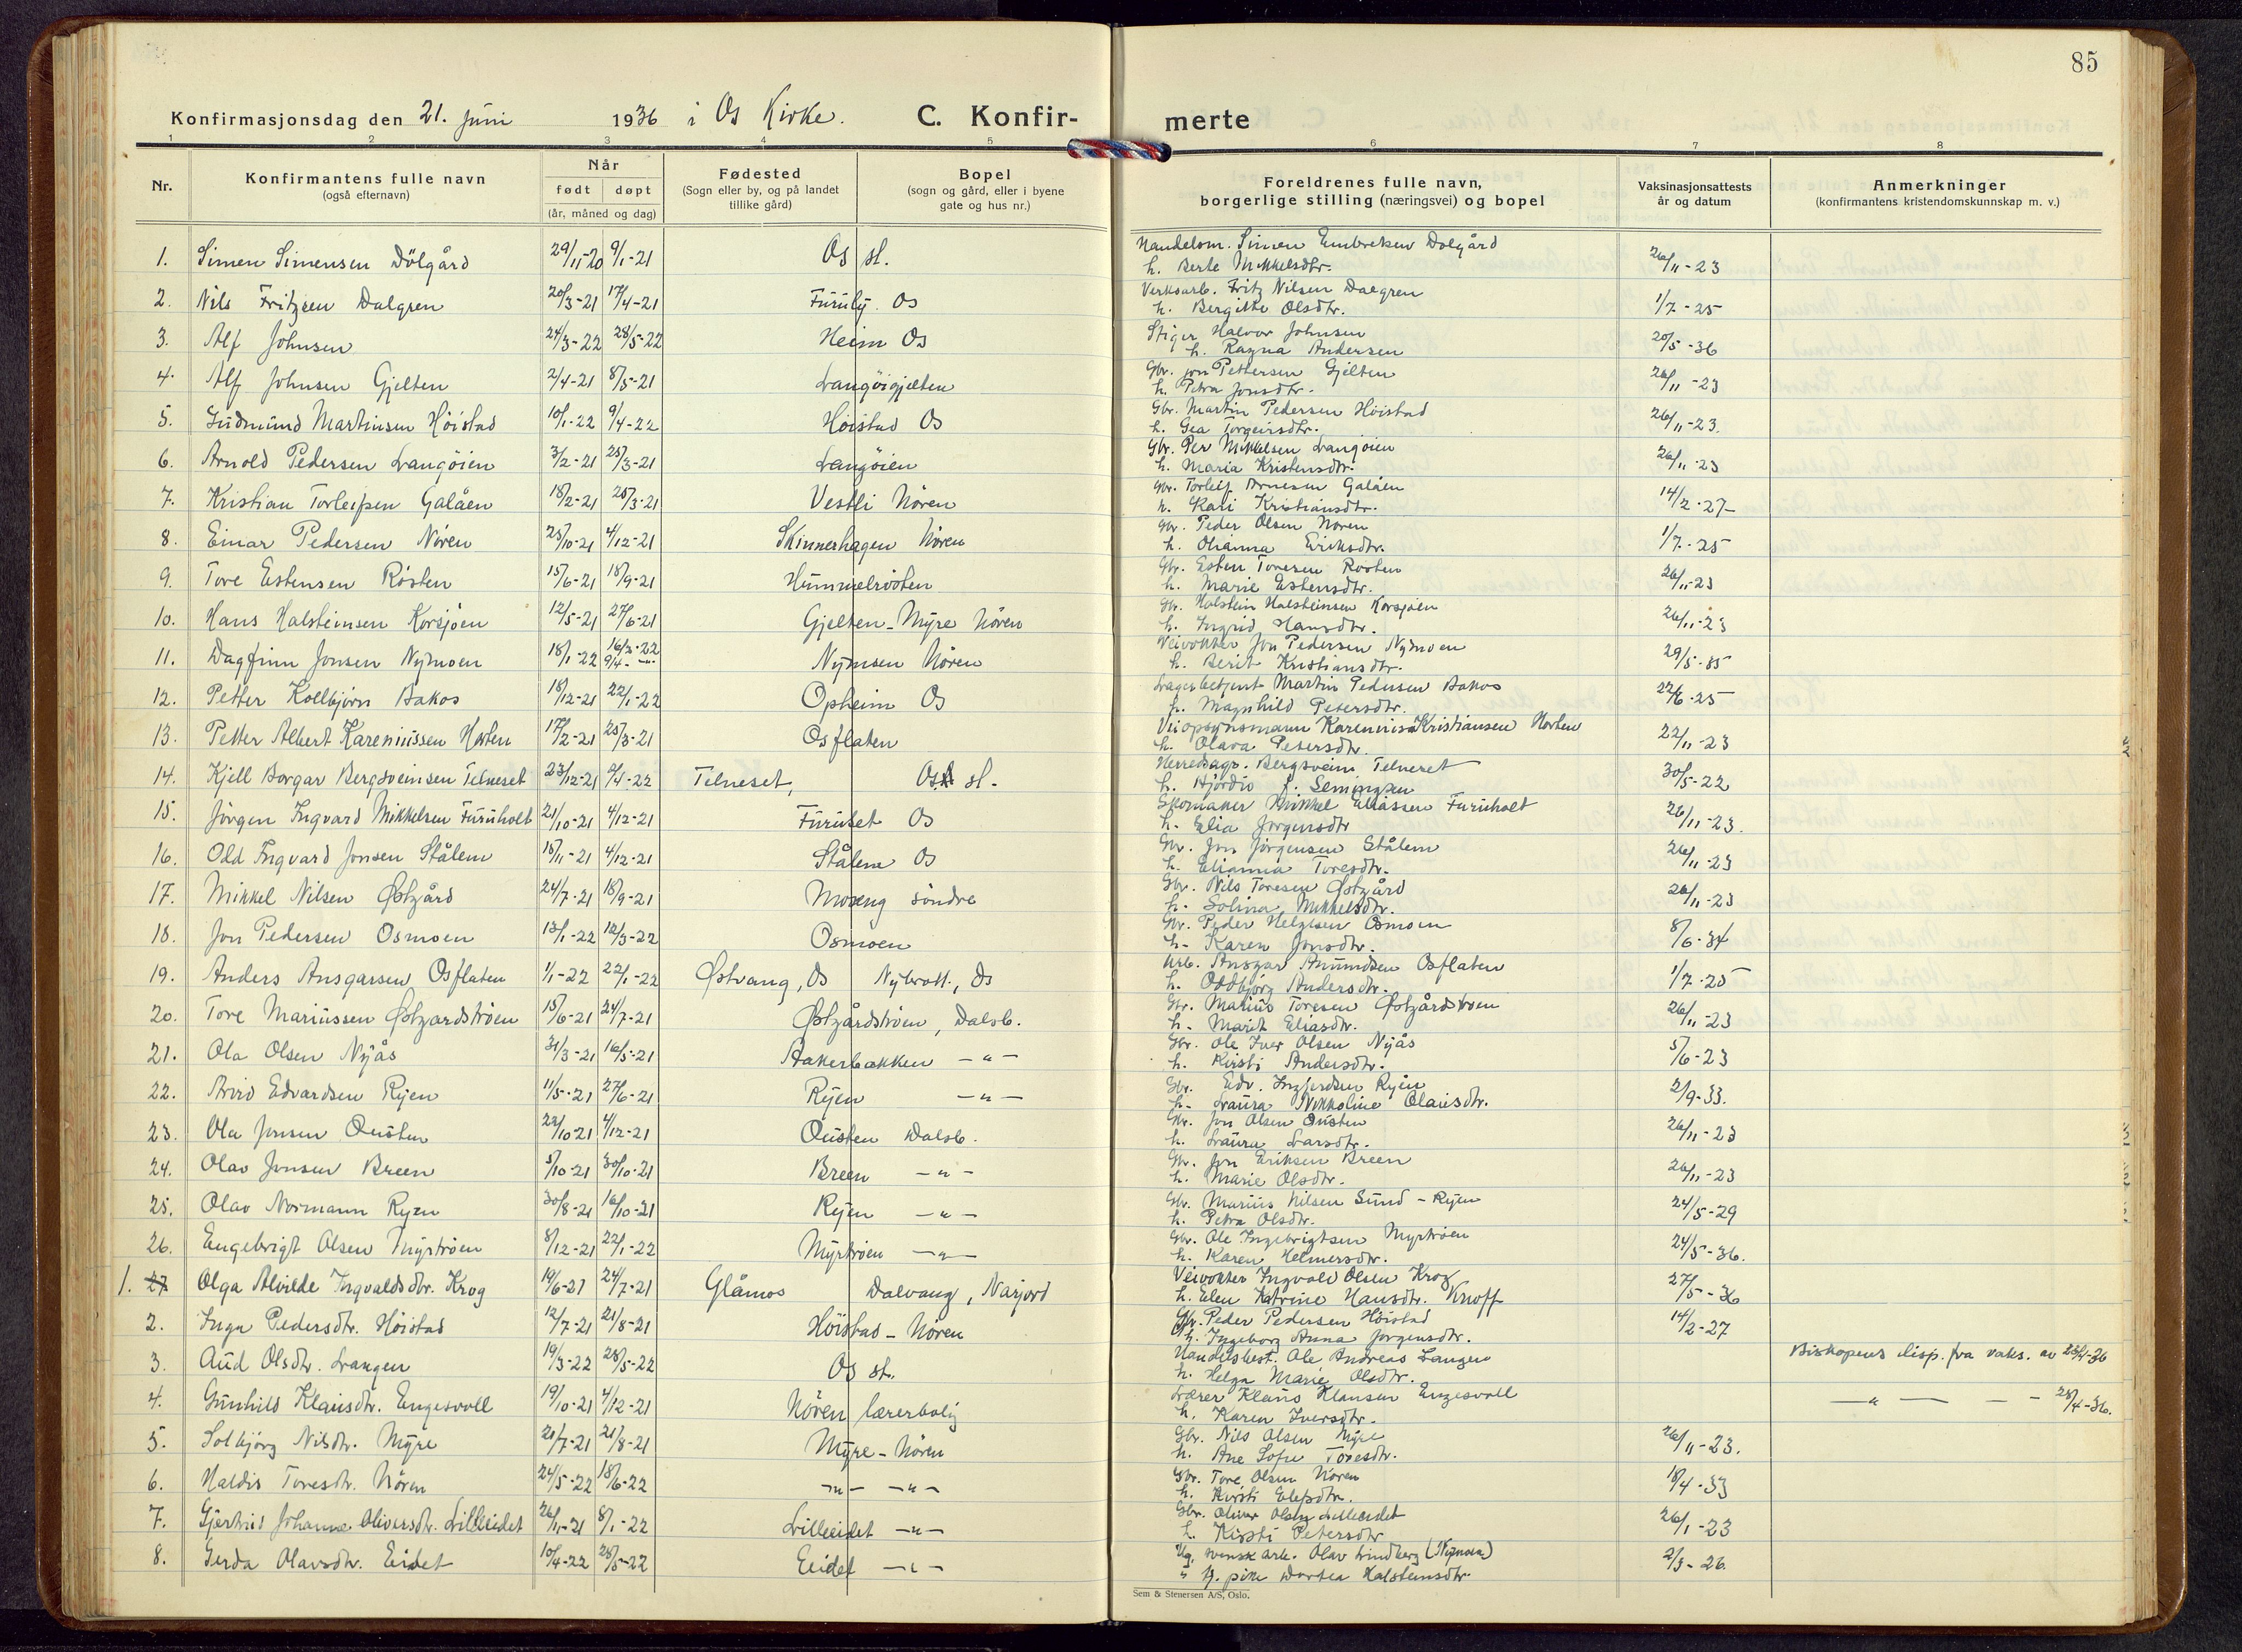 85
Konfirmasjonsdag den 21. juni 1936 i Os Kirke. C. Konfir-
merte
1 2 3 4 5 6 7 8
Nr. Konfirmantens fulle navn (også efternavn) Når født døpt (år, måned og dag) Fødested (Sogn eller by, og på landet tillike gård) Bopel (sogn og gård, eller i byene gate og hus nr.)
Foreldrenes fulle navn, borgerlige stilling (næringsvei) og bopel Vaksinasjonsattests år og datum Anmerkninger (konfirmantens kristendomskunnskap m. v.)
1. Simen Simensen Dölgård 29/11-20 9/1-21 Os st. Handelsm. Simen Embretsen Dolgård
h. Berte Mikkelsdtr. 26/11-23
2. Nils Fritzsen Dalgren 20/3-21 17/4-21 Furuly. Os Verksarb. Fritz Nilsen Dalgren
h. Bergitte Olsdtr. 1/7-25
3. Alf Johnsen 24/3-22 28/5-22 Heim Os Stiger Halvor Johnsen
h. Ragna Andersen 20/5-36
4. Alf Johnsen Gjelten 2/4-21 8/5-21 Langöigjelten Gbr. Jon Pettersen Gjelten
h. Petra Jonsdtr. 26/11-23
5. Gudmund Martinsen Höistad 10/1-22 9/4-22 Höistad Os Gbr. Martin Pedersen Höistad
h. Gea Torgeirsdtr. 26/11-23.
6. Arnold Pedersen Langöien 3/2-21 25/3-21 Langöien Gbr. Per Mikkelsen Langöien
h. Maria Kristensdtr. 26/11-23
7. Kristian Torleifsen Galåen 18/2-21 25/3-21 Vestli Nören Gbr. Torleif Arnesen Galåen
h. Kari Kristiansdtr. 14/2-27-
8. Einar Pedersen Nören 23/10-21 4/12-21 Skinnerhagen Nören Gbr. Peder Olsen Nören
h. Olianna Eriksdtr. 1/7-25
9. Tore Estensen Rösten 15/6-21 18/9-21 Hummelrösten Gbr. Esten Toresen Rösten
h. Marie Estensdtr. 26/11-23
10. Hans Halsteinsen Korsjöen 12/5-21 27/6-21 Gjelten-Myre Nören Gbr. Halstein Halsteinsen Korsjöen
h. Ingrid Hansdtr. 26/11-23
11. Dagfinn Jonsen Nymoen 18/1-22 16/3-22 9/4-"- Nymoen Nören Veivokter Jon Pedersen Nymoen
h. Berit Kristiansdtr. 29/5-35
12. Petter Kolbjörn Bakos 18/12-21 22/1-22 Opheim Os Lagerbetjent Martin Pedersen Bakos
h. Magnhild Petersdtr. 22/6-25
13. Petter Albert Kareniussen Horten 17/2-21 25/3-21 Osflaten Veiopsynsmann Karenius Kristiansen Horten
h. Olava Petersdtr. 22/11-23
14. Kjell Borgar Bergsveinsen Telneset 23/12-21 -22 Telneset, Os st. Herredsagr. Bergsvein Telneset
h. Hjördis f. Semingsen 30/5-22
15. Jörgen Ingvard Mikkelsen Furuholt 21/10-21 4/12-21 Furuset Os Skomaker Mikkel Eliassen Furuholt
h. Elia Jörgensdtr 26/11-23.
16. Odd Ingvard Jonsen Stålem 15/11-21 4/12-21 Stålem Os Gbr. Jon Jörgensen Stålem
h. Elianna Toresdtr. 26/11-23
17. Mikkel Nilsen Østgård 24/7-21 18/9-21 Moseng söndre Gbr. Nils Toresen Østgård
h. Solina Mikkelsdtr. 26/11-23
18. Jon Pedersen Osmoen 13/1-22 12/3-22 Osmoen Gbr. Peder Helgesen Osmoen
h. Karen Jonsdtr. 8/6-34
19. Anders Ansgarsen Osflaten 1/1-22 22/1-22 Østvang, Os Nybrott., Os Arb. Ansgar Amundsen Osflaten
h. Oddbjörg Andersdtr. 1/7-25
20. Tore Mariussen Østgårdströen 15/6-21 24/7-21 Østgårdströen, Dalsb. Gbr. Marius Toresen Østgårdströen
h. Marit Eliasdtr. 26/11-23
21. Ola Olsen Nyås 31/3-21 16/5-21 Aakerbakken -"- Gbr. Ole Iver Olsen Nyås
h. Kirsti Andersdtr. 5/6-23
22. Arvid Edvardsen Ryen 11/5-21 27/6-21 Ryen -"- Gbr. Edv. Ingferdsen Ryen
h. Laura Nikoline Olausdtr. 2/9-33.
23. Ola Jonsen Qusten 22/10-21 4/12-21 Qusten Dalsb. Gbr. Jon Olsen Qusten
h. Laura Larsdtr. 26/11-23
24. Olav Jonsen Breen 5/10-21 30/10-21 Breen -"- Gbr. Jon Eriksen Breen
h. Marie Olsdtr. 26/11-23
25. Olav Normann Ryen 30/8-21 16/10-21 Ryen -"- Gbr. Marius Nilsen Sund-Ryen
h. Petra Olsdtr. 24/5-29
26. Engebrigt Olsen Myrtröen 8/12-21 22/1-22 Myrtröen -"- Gbr. Ole Ingebrigtsen Myrtröen
h. Karen Helmersdtr. 24/5-36.
1. 27 Olga Alvilde Ingvaldsdtr. Krog 19/6-21 24/7-21 Glåmos Dalvang, Narjord Veivokter Ingvald Olsen Krog
h. Elen Katrine Hansdtr. Knoff 27/5-36
2. Inga Pedersdtr. Höistad 12/7-21 21/8-21 Höistad-Nören Gbr. Peder Pedersen Höistad
h. Ingeborg Anna Jörgensdtr. 14/2-27
3. Aud Olsdtr. Langen 19/3-22 28/5-22 Os st. Handelsbest. Ole Andreas Langen
h. Helga Marie Olsdtr. Biskopens disp. fra vaks. av 28/4-36
4. Gunhild Klausdtr. Engesvoll 19/10-21 4/12-21 Nören lærerbolig Lærer Klaus Klausen Engesvoll
h. Karen Iversdtr. -"- - - 28/4-36.
5. Solbjörg Nilsdtr. Myre 21/7-21 21/8-21 Myre-Nören Gbr. Nils Olsen Myre
h. Ane Sofie Toresdtr. 26/11-23.
6. Haldis Toresdtr. Nören 24/5-22 18/6-22 -"- -"- Gbr. Tore Olsen Nören
h. Kirsti Elefsdtr. 18/4-33
7. Gjertrud Johanne Oliversdtr. Lilleeidet 26/11-21 8/1-22 Lilleeidet -"- Gbr. Oliver Olsen Lilleeidet
h. Kirsti Petersdtr 26/1-23
8. Gerda Olavsdtr. Eidet 10/4-22 28/5-22 Eidet -"- Ug. svensk arb. Olav Lindberg (Nymoen)
" g. pike Dortea Halsteinsdtr. 2/3-26.
Sem & Stenersen A/S, Oslo.